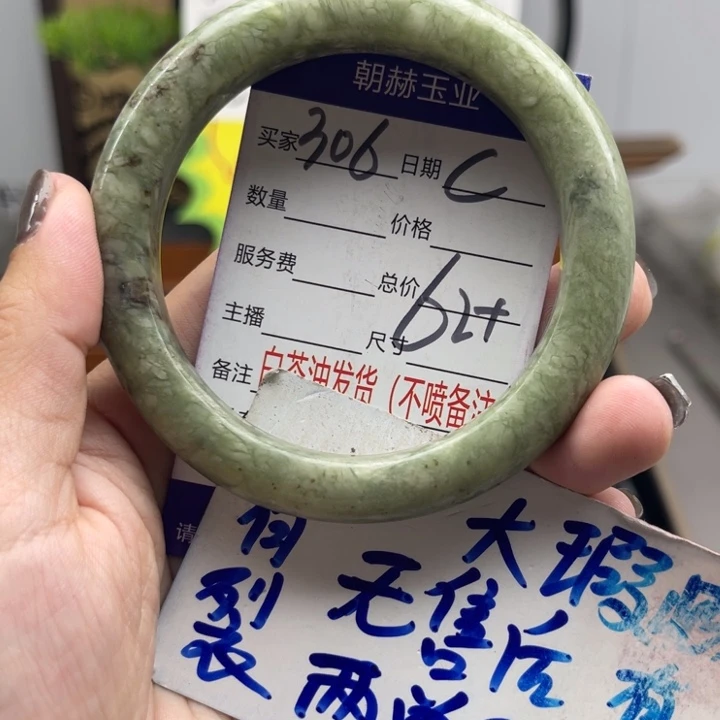 朝赫玉业
买家 306 日期 C
数量 价格
服务费 总价
主播 尺寸 62+
备注 白茶油发货（不喷备注
请
有裂
无售后
大瑕
两